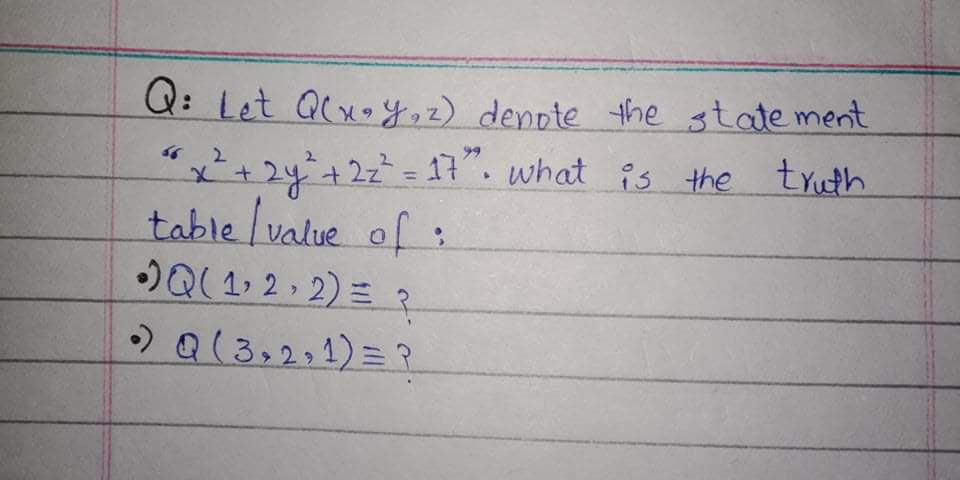 Q: Let Q(x,y,z) denote the statement
“x² + 2y² + 2z² = 17”. what is the truth
table/value of :
•) Q(1,2,2) ≡ ?
•) Q(3,2,1) ≡ ?